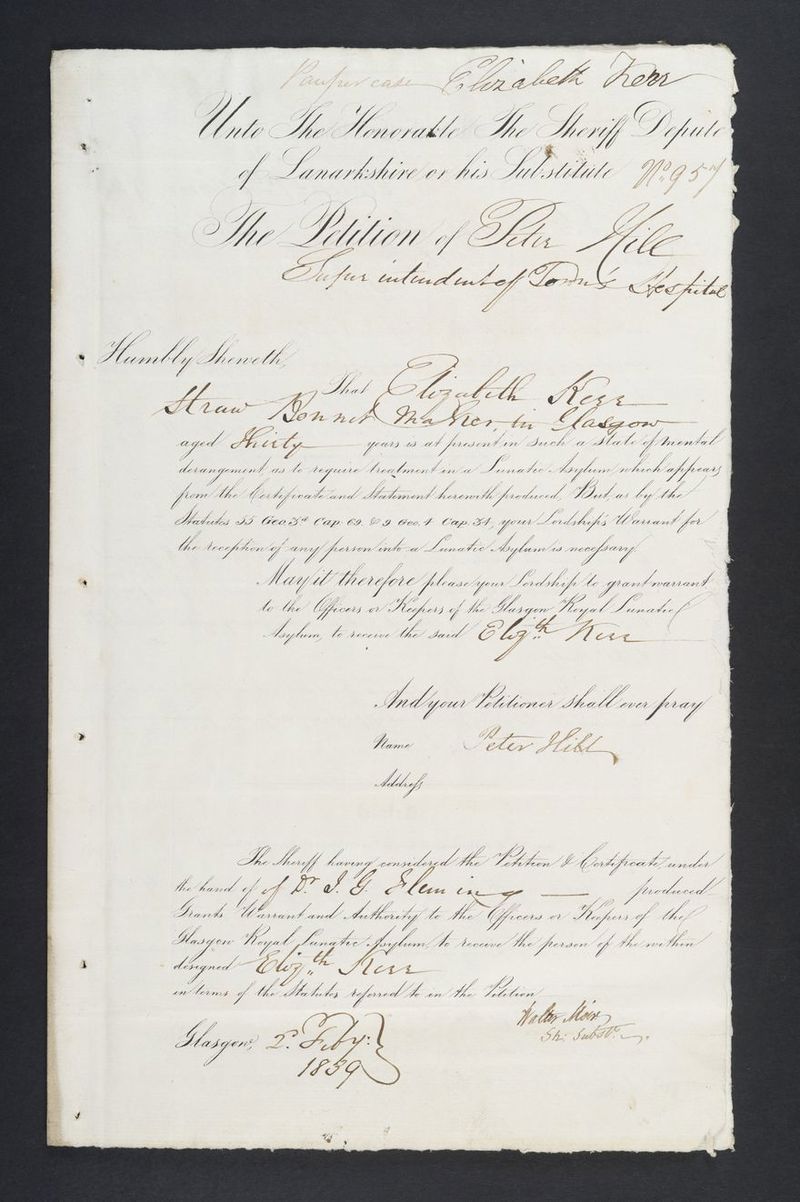 Pauper case Elizabeth Kerr
Unto The Honorable The Sheriff Depute
of Lanarkshire or his Substitute No. 957
The Petition of Peter Hill
Superintendent of Town's Hospital
Humbly Sheweth,
That Elizabeth Kerr
Straw Bonnet Maker in Glasgow
aged Thirty years is at present in such a state of mental
derangement as to require treatment in a Lunatic Asylum, which appears
from the Certificate and Statement herewith produced, But as by the
Statutes 55 Geo. 3d. Cap. 69. & 9 Geo. 4 Cap. 34, your Lordship's Warrant for
the reception of any person into a Lunatic Asylum is necessary.
May it therefore please your Lordship to grant warrant
to the Officers or Keepers of the Glasgow Royal Lunatic
Asylum, to receive the said Elizth. Kerr
And your Petitioner shall ever pray
Name Peter Hill
Address
The Sheriff having considered the Petition & Certificate under
the hand of of Dr. J. G. Fleming — produced
Grants Warrant and Authority to the Officers or Keepers of the
Glasgow Royal Lunatic Asylum, to receive the person of the within
designed Elizth. Kerr
in terms of the Statutes referred to in the Petition
Walter Moir
Sh: Subst.
Glasgow, 2d. Feby:
1839